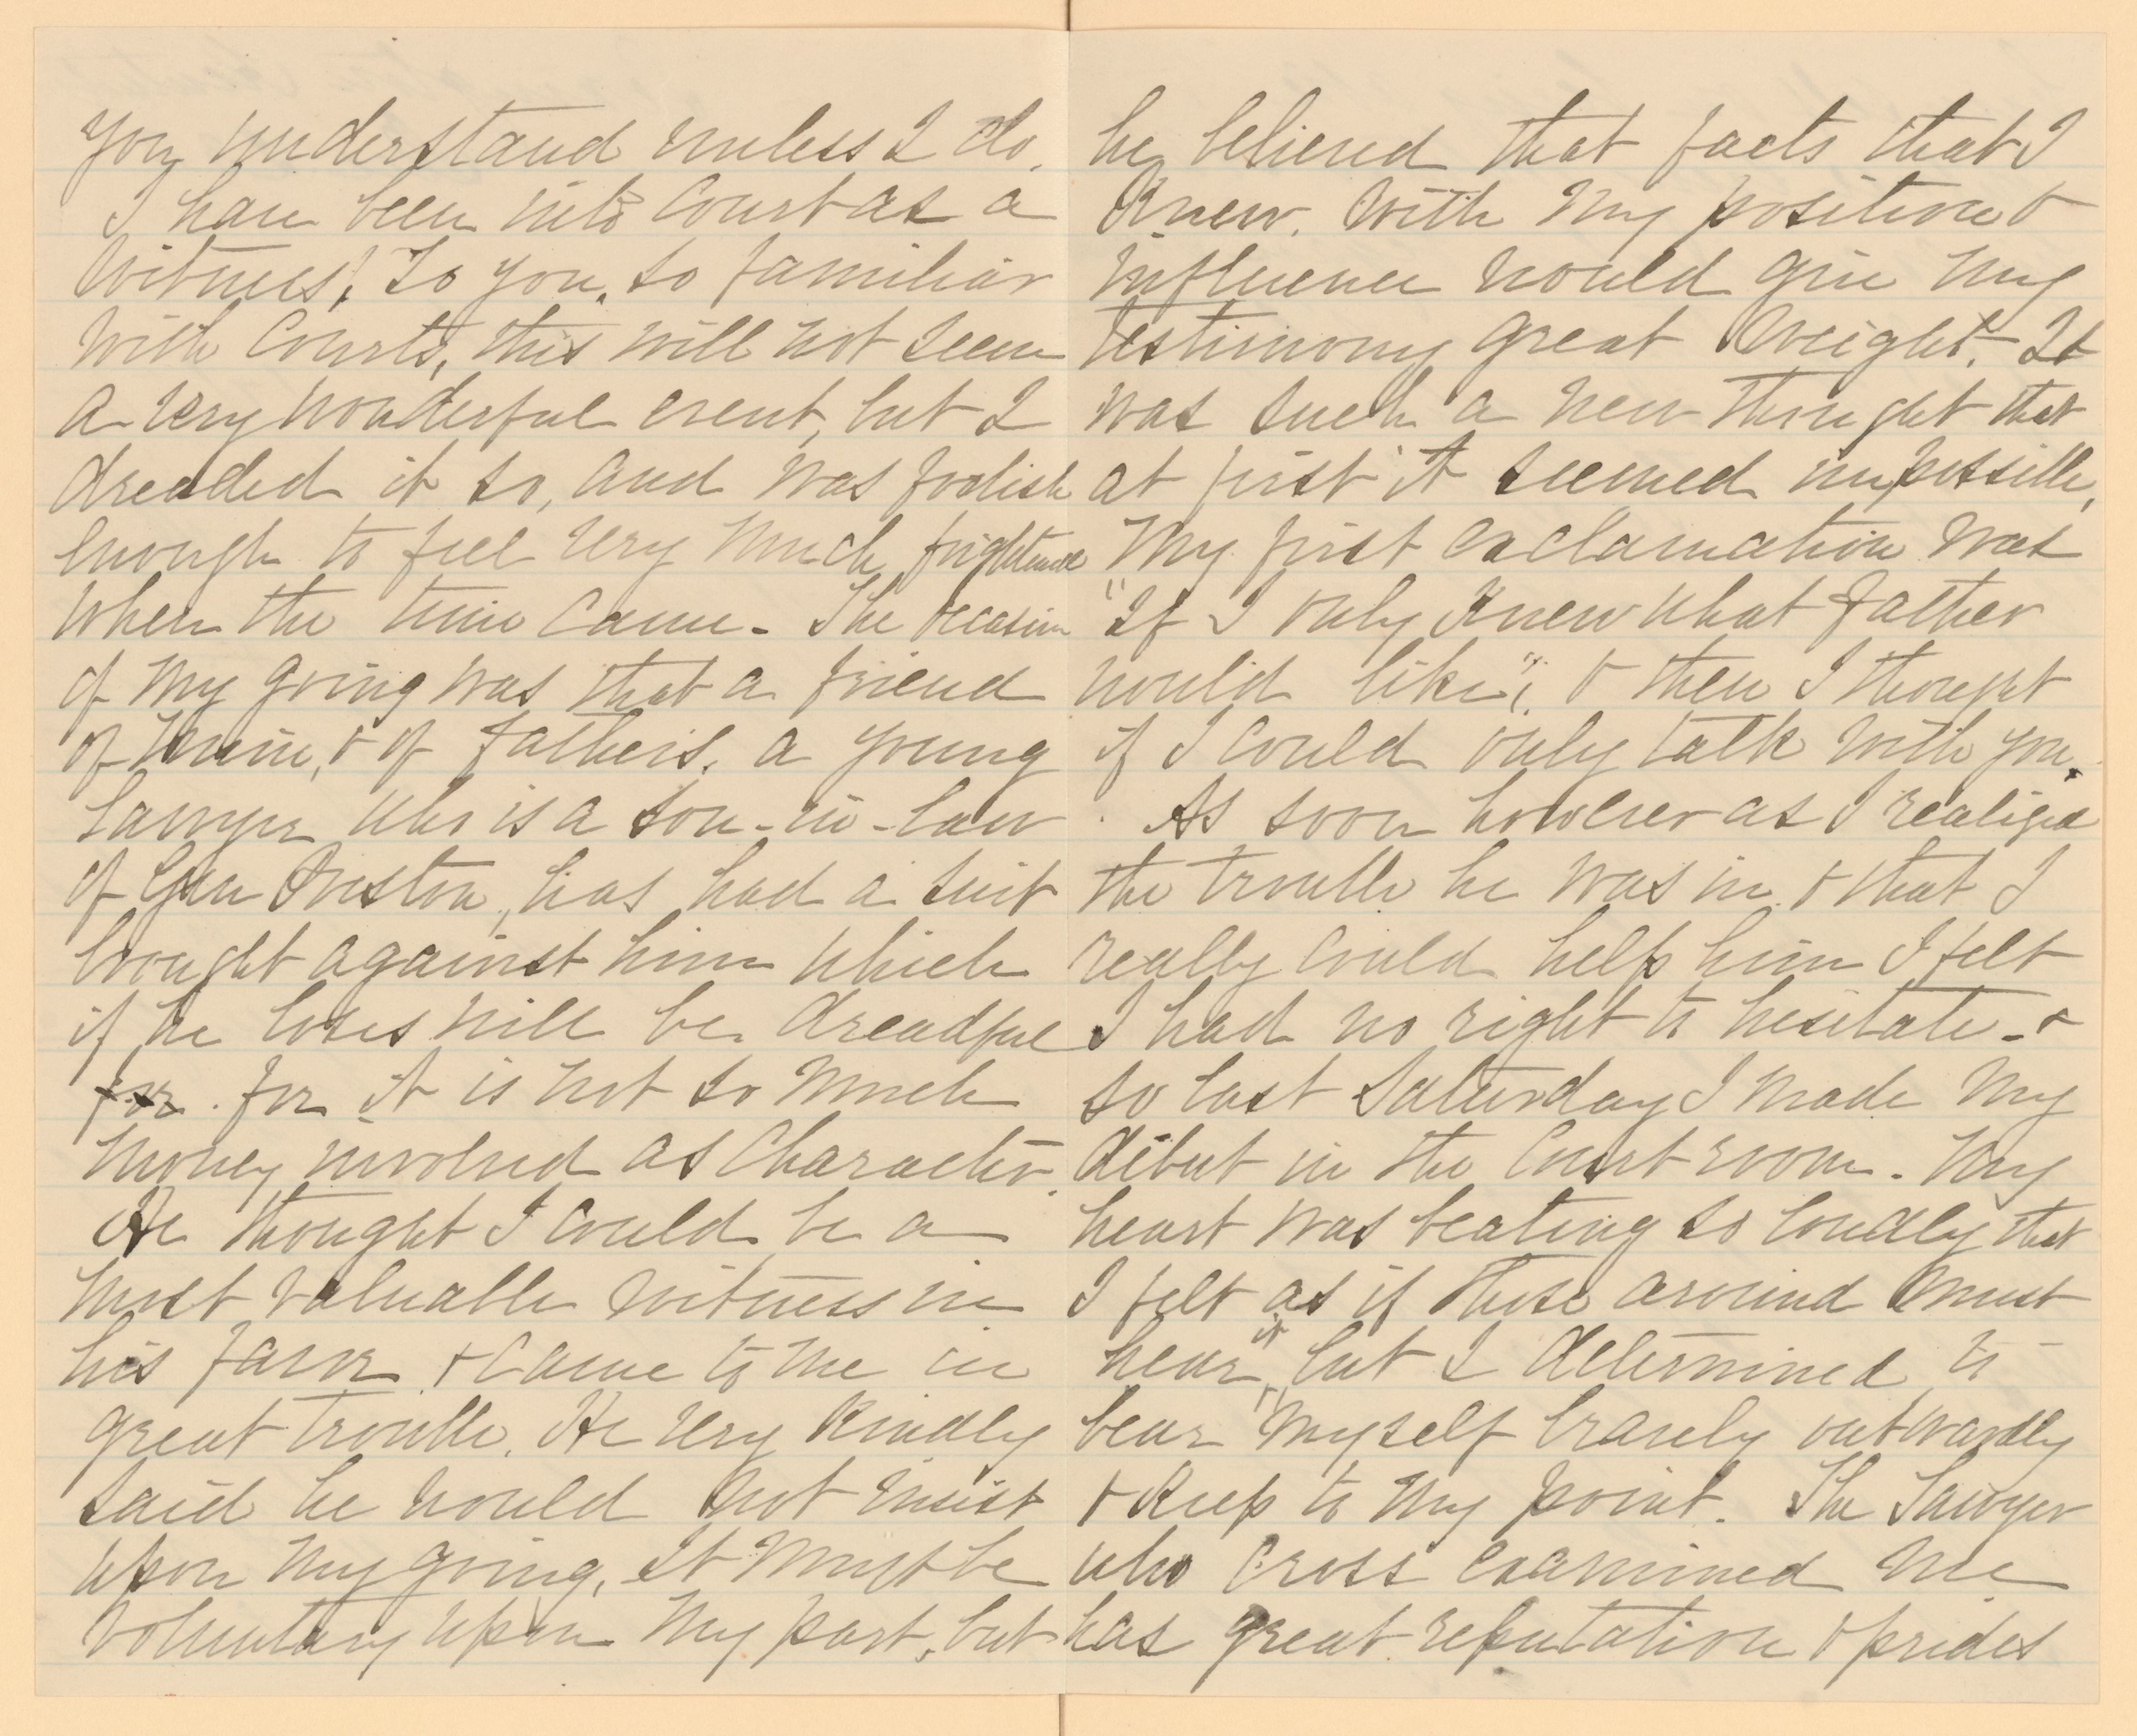 you understand unless I do.
I have been into Court as a
witness! To you, so familiar
with Courts, this will not seem
a very wonderful event, but I
dreaded it so, and was foolish
enough to feel very much frightened
when the time came - The occasion
of my going was that a friend
of mine, & of Father's, a young
Lawyer who is a son-in-law
of Gen Preston, has had a suit
brought against him which
if he loses will be dreadful
for for it is not so much
money involved as Character.
He thought I could be a
most valuable witness in
his favor & came to me in
great trouble. He very kindly
said he would not insist
upon my going, it must be
voluntary upon my part, but
he believed that facts that I
knew, with my position &
influence would give my
testimony great weight. It
was such a new thought that
at first it seemed impossible,
My first exclamation was
"If I only knew what Father
would like"; & then I thought
if I could only talk with you.
As soon however as I realized
the trouble he was in & that I
really could help him I felt
I had no right to hesitate - &
so last Saturday I made my
debut in the Court room. My
heart was beating so loudly that
I felt as if those around must
hear it, but I determined to
bear myself bravely outwardly
& keep to my point. The Lawyer
who cross examined me
has great reputation & prides